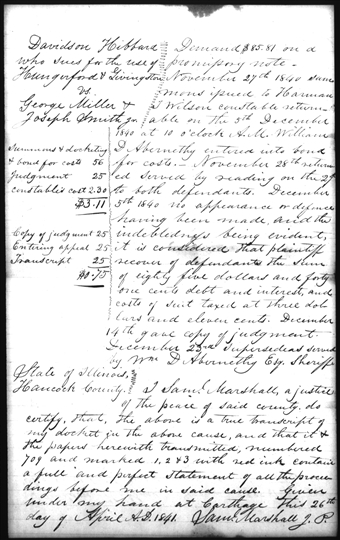 Davidson Hibbard
who sues for the use of
Hungerford & Livingston
vs.
George Miller &
Joseph Smith
Summons & docketing
& bond for costs 56
Judgment 25
constable's cost 2.30
$3.11
Copy of judgment 25
Entering appeal 25
Transcript 25
$0.75
Demand $85.81 on a
promisory note -
November 27th 1840 sum
mons issued to Harman
T Wilson constable return-
able on the 5th December
1840 at 10 o'clock A.M. William
D Abernethy entered into bond
for costs. - November 28th return
ed served by reading on the
to both defendants. December
5th 1840 no appearance or defence
having been made, and the
indebtedness being evident,
it is considered that plaintiff
recover of defendants the sum
of eighty five dollars and forty
one cents debt and interest, and
costs of suit taxed at three dol
lars and eleven cents. December
14th gave copy of judgment.
December 23rd Supersedeas served
by Wm D Abernethy Esq. Sheriff
State of Illinois,
Hancock County. I Saml. Marshall, a justice
of the peace of said county, do
certify, that, the above is a true transcript of
my docket in the above cause, and that it &
the papers herewith transmitted, numbered
709 and marked 1, 2 & 3 with red ink contain
a full and perfect statement of all the procee
dings before me in said cause. Given
under my hand at Carthage this 26th
day of April A.D. 1841. Saml. Marshall J. P.